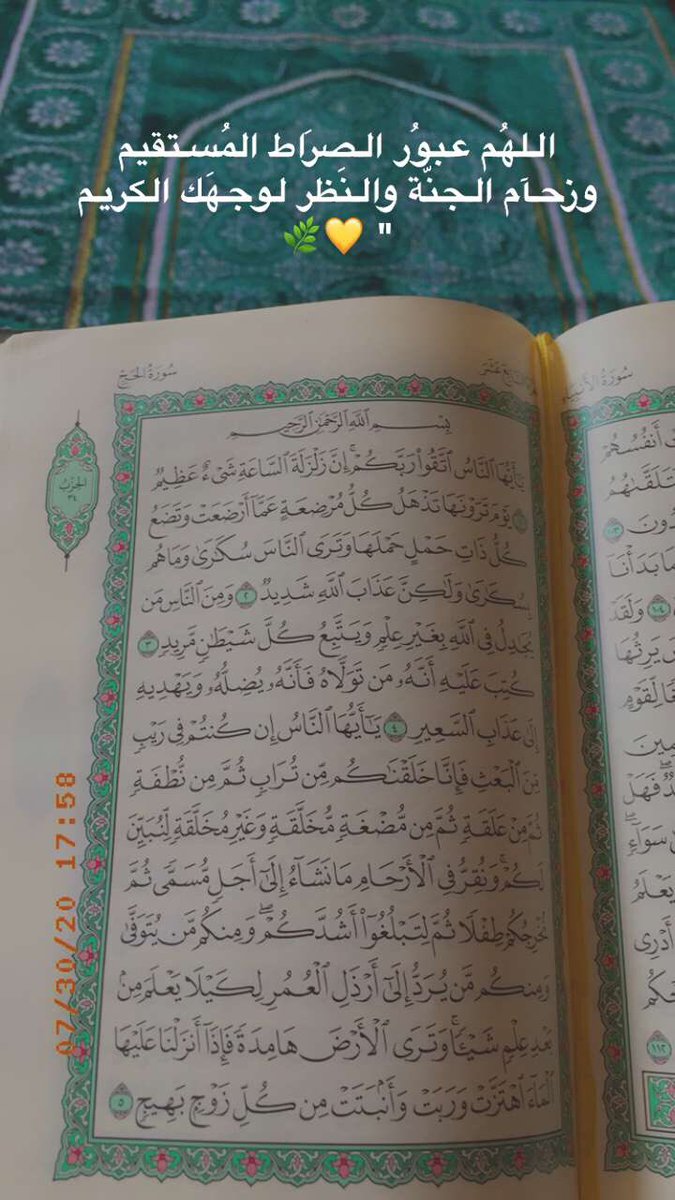 اللهُم عبورُ الصِرَاط المُستقيم
وزحآم الجنّة والنَظر لوجهَك الكريم
" 💛🌿
سُورَةُ الحَجّ
بِسْمِ اللَّهِ الرَّحْمَٰنِ الرَّحِيمِ
يَٰٓأَيُّهَا ٱلنَّاسُ ٱتَّقُوا۟ رَبَّكُمْ ۚ إِنَّ زَلْزَلَةَ ٱلسَّاعَةِ شَىْءٌ عَظِيمٌ
١ يَوْمَ تَرَوْنَهَا تَذْهَلُ كُلُّ مُرْضِعَةٍ عَمَّآ أَرْضَعَتْ وَتَضَعُ
كُلُّ ذَاتِ حَمْلٍ حَمْلَهَا وَتَرَى ٱلنَّاسَ سُكَٰرَىٰ وَمَا هُم
بِسُكَٰرَىٰ وَلَٰكِنَّ عَذَابَ ٱللَّهِ شَدِيدٌ ٢ وَمِنَ ٱلنَّاسِ مَن
يُجَٰدِلُ فِى ٱللَّهِ بِغَيْرِ عِلْمٍ وَيَتَّبِعُ كُلَّ شَيْطَٰنٍ مَّرِيدٍ ٣
كُتِبَ عَلَيْهِ أَنَّهُۥ مَن تَوَلَّاهُ فَأَنَّهُۥ يُضِلُّهُۥ وَيَهْدِيهِ
إِلَىٰ عَذَابِ ٱلسَّعِيرِ ٤ يَٰٓأَيُّهَا ٱلنَّاسُ إِن كُنتُمْ فِى رَيْبٍ
مِّنَ ٱلْبَعْثِ فَإِنَّا خَلَقْنَٰكُم مِّن تُرَابٍ ثُمَّ مِن نُّطْفَةٍ
ثُمَّ مِنْ عَلَقَةٍ ثُمَّ مِن مُّضْغَةٍ مُّخَلَّقَةٍ وَغَيْرِ مُخَلَّقَةٍ لِّنُبَيِّنَ
لَكُمْ ۚ وَنُقِرُّ فِى ٱلْأَرْحَامِ مَا نَشَآءُ إِلَىٰٓ أَجَلٍ مُّسَمًّى ثُمَّ
نُخْرِجُكُمْ طِفْلًا ثُمَّ لِتَبْلُغُوٓا۟ أَشُدَّكُمْ ۖ وَمِنكُم مَّن يُتَوَفَّىٰ
وَمِنكُم مَّن يُرَدُّ إِلَىٰٓ أَرْذَلِ ٱلْعُمُرِ لِكَيْلَا يَعْلَمَ مِنۢ
بَعْدِ عِلْمٍ شَيْـًٔا ۚ وَتَرَى ٱلْأَرْضَ هَامِدَةً فَإِذَآ أَنزَلْنَا عَلَيْهَا
ٱلْمَآءَ ٱهْتَزَّتْ وَرَبَتْ وَأَنۢبَتَتْ مِن كُلِّ زَوْجٍۭ بَهِيجٍ ٥
الحِزْبُ
٣٤
07/30/20 17:58
سُورَةُ الأَنبِيَاء
أَنفُسُهُمْ
وَتَتَلَقَّىٰهُمُ
١٠٣
كَمَا بَدَأْنَآ
١٠٤ وَلَقَدْ
يَرِثُهَا
لِّقَوْمٍ
فَهَلْ
سَوَآءٍ
يَعْلَمُ
أَدْرِى
١١٢